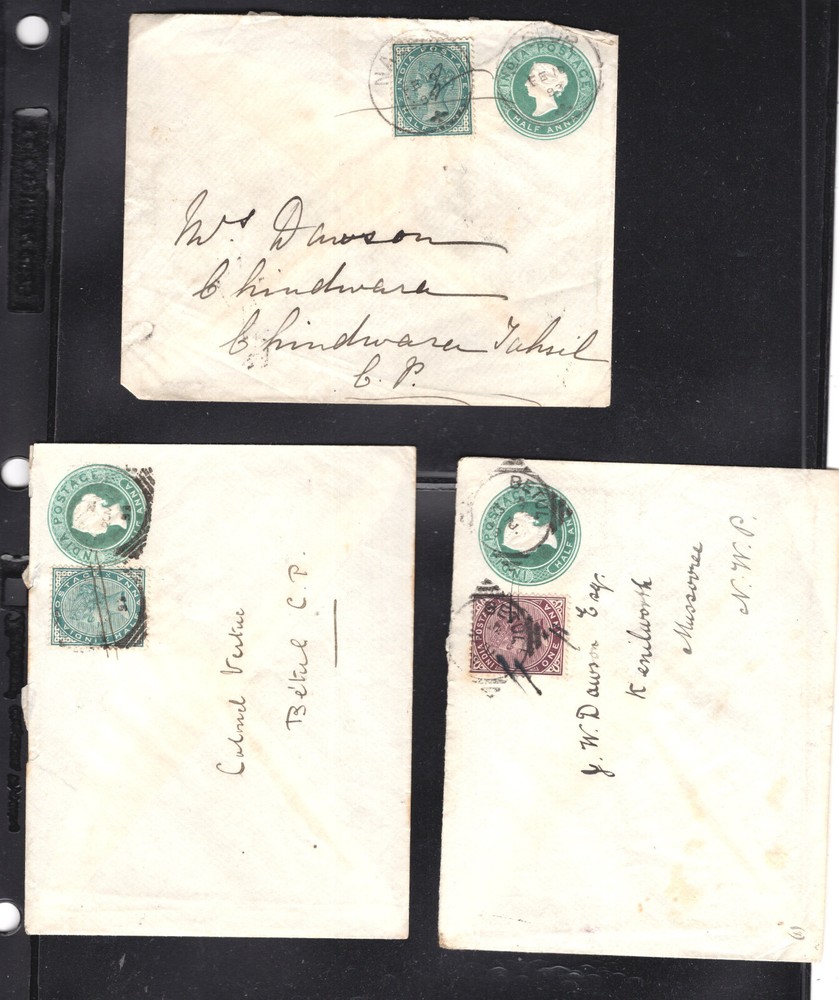 INDIA POSTAGE
HALF ANNA
INDIA POSTAGE
HALF ANNA
FE
93
Mrs Dawson
Chindwara
Chindwara Tahsil
C. P.
INDIA POSTAGE
HALF ANNA
INDIA POSTAGE
HALF ANNA
Colonel Vertue
Betul C. P.
BETUL
INDIA POSTAGE
HALF ANNA
BETUL
INDIA POSTAGE
ONE ANNA
J. W. Dawson Esq.
Kenilworth
Mussooree
N. W. P.